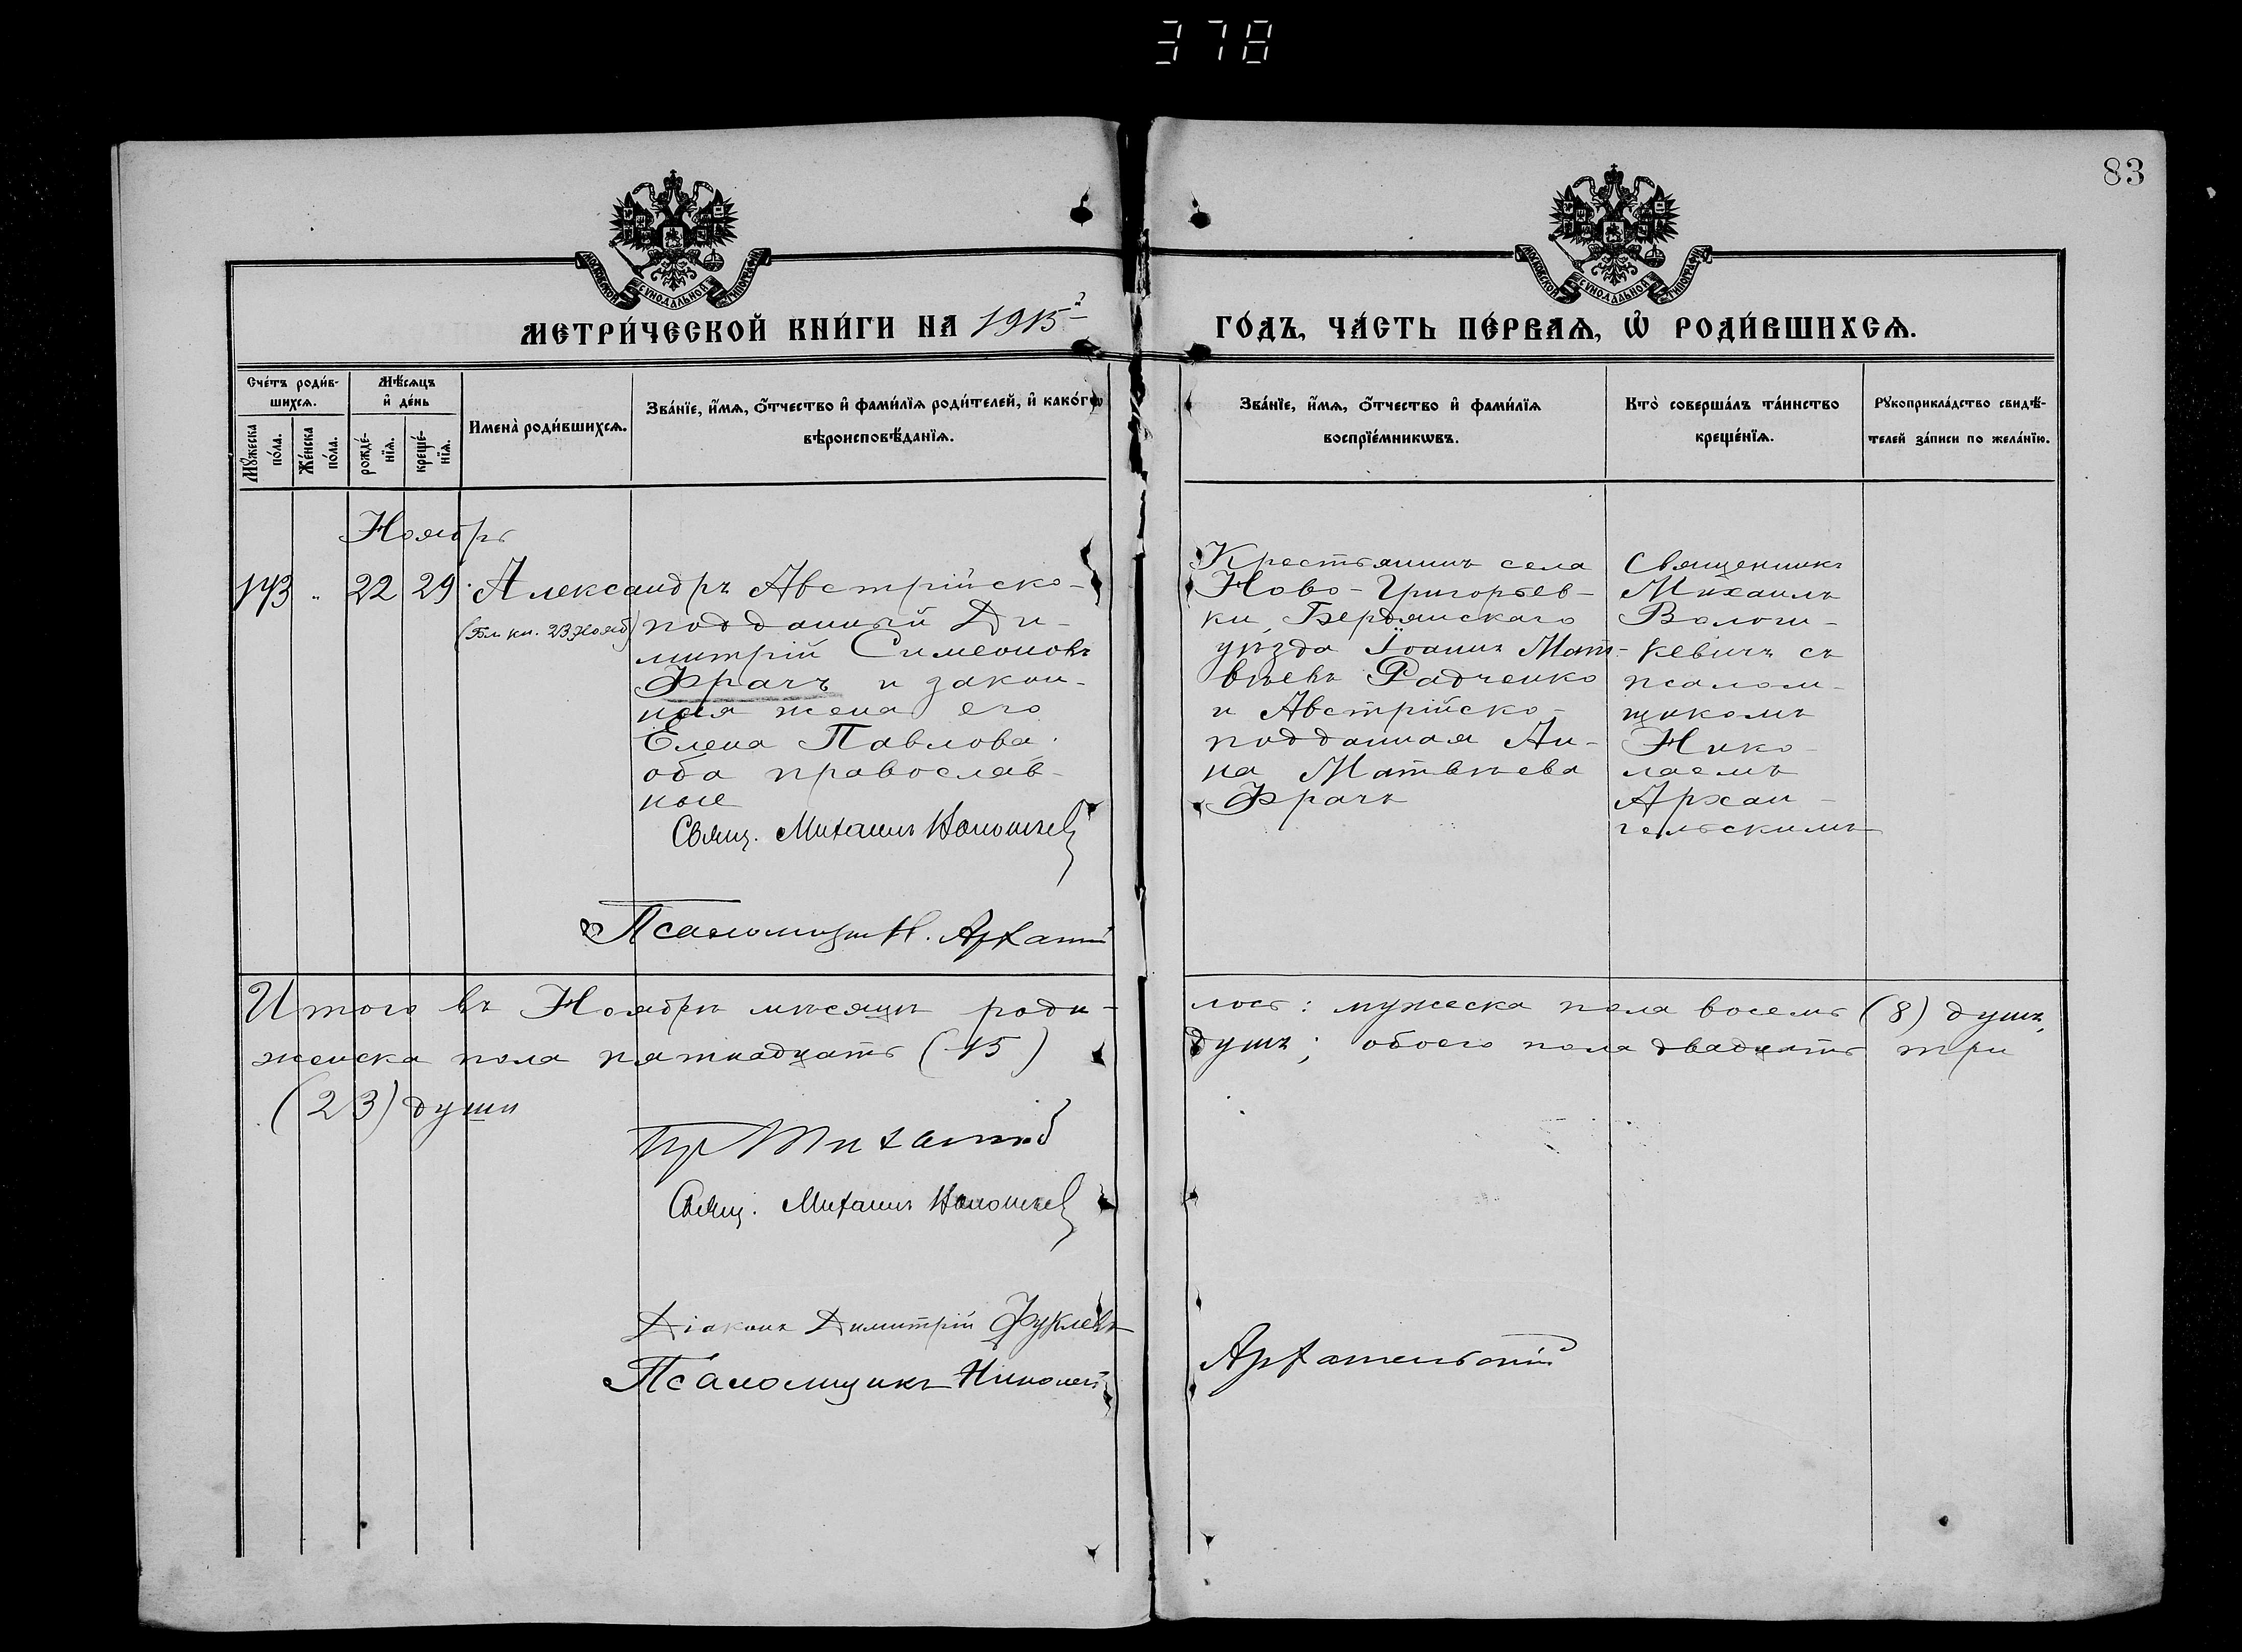 378
83
МОСКОВСКОЙ СѴНОДАЛЬНОЙ ТИПОГРАФІИ
МОСКОВСКОЙ СѴНОДАЛЬНОЙ ТИПОГРАФІИ
МЕТРИ́ЧЕСКОЙ КНИ́ГИ НА 1915й
ГО́ДЪ, ЧА́СТЬ ПЕ́РВАѦ, Ѡ҆ РОДИ́ВШИХСѦ.
Сче́тъ роди́в-
шихсѧ.
Мꙋ́жеска по́ла.
Же́нска по́ла.
Мѣ́сѧцъ
и҆ де́нь
рожде́-
нїѧ.
креще́-
нїѧ.
Имена̀ роди́вшихсѧ.
Зва́нїе, и҆́мѧ, ѻ҆́тчество и҆ фами́лїѧ роди́телей, и҆ како́гѡ
вѣроисповѣ́данїѧ.
Зва́нїе, и҆́мѧ, ѻ҆́тчество и҆ фами́лїѧ
воспрїе́мникѡвъ.
Кто̀ соверша́лъ та́инство
креще́нїѧ.
Рꙋкоприкла́дство свидѣ́-
телей за́писи по жела́нїю.
Ноябрь
143 " 22 29 Александръ
(Бл. кн. 23 Нояб)
Австрійско-
подданный Ди-
митрій Симеоновъ
Фрачъ и закон-
ная жена его
Елена Павлова.
оба православ-
ные
Свящ. Михаилъ
Псаломщ. Н. Архан
Крестьянинъ села
Ново-Григорьев-
ки, Бердянскаго
уѣзда Іоаннъ Мат-
вѣевъ Радченко
и Австрійско-
подданная Ан-
на Матвѣева
Фрачъ
Священникъ
Михаилъ
Волош-
кевичъ съ
псалом-
щикомъ
Нико-
лаемъ
Архан-
гельскимъ
Итого въ Ноябрѣ мѣсяцѣ роди-
лось: мужеска пола восемь (8) душъ,
женска пола пятнадцать (15)
душъ; обоего пола двадцать три
(23) души
Свящ. Михаилъ
Діаконъ Димитрій
Псаломщикъ Николай
Архангельскій